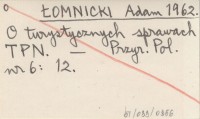 o ŁOMNICKI Adam 1962.
O turystycznych sprawach
TPN. — Przyr. Pol.
nr 6: 12.